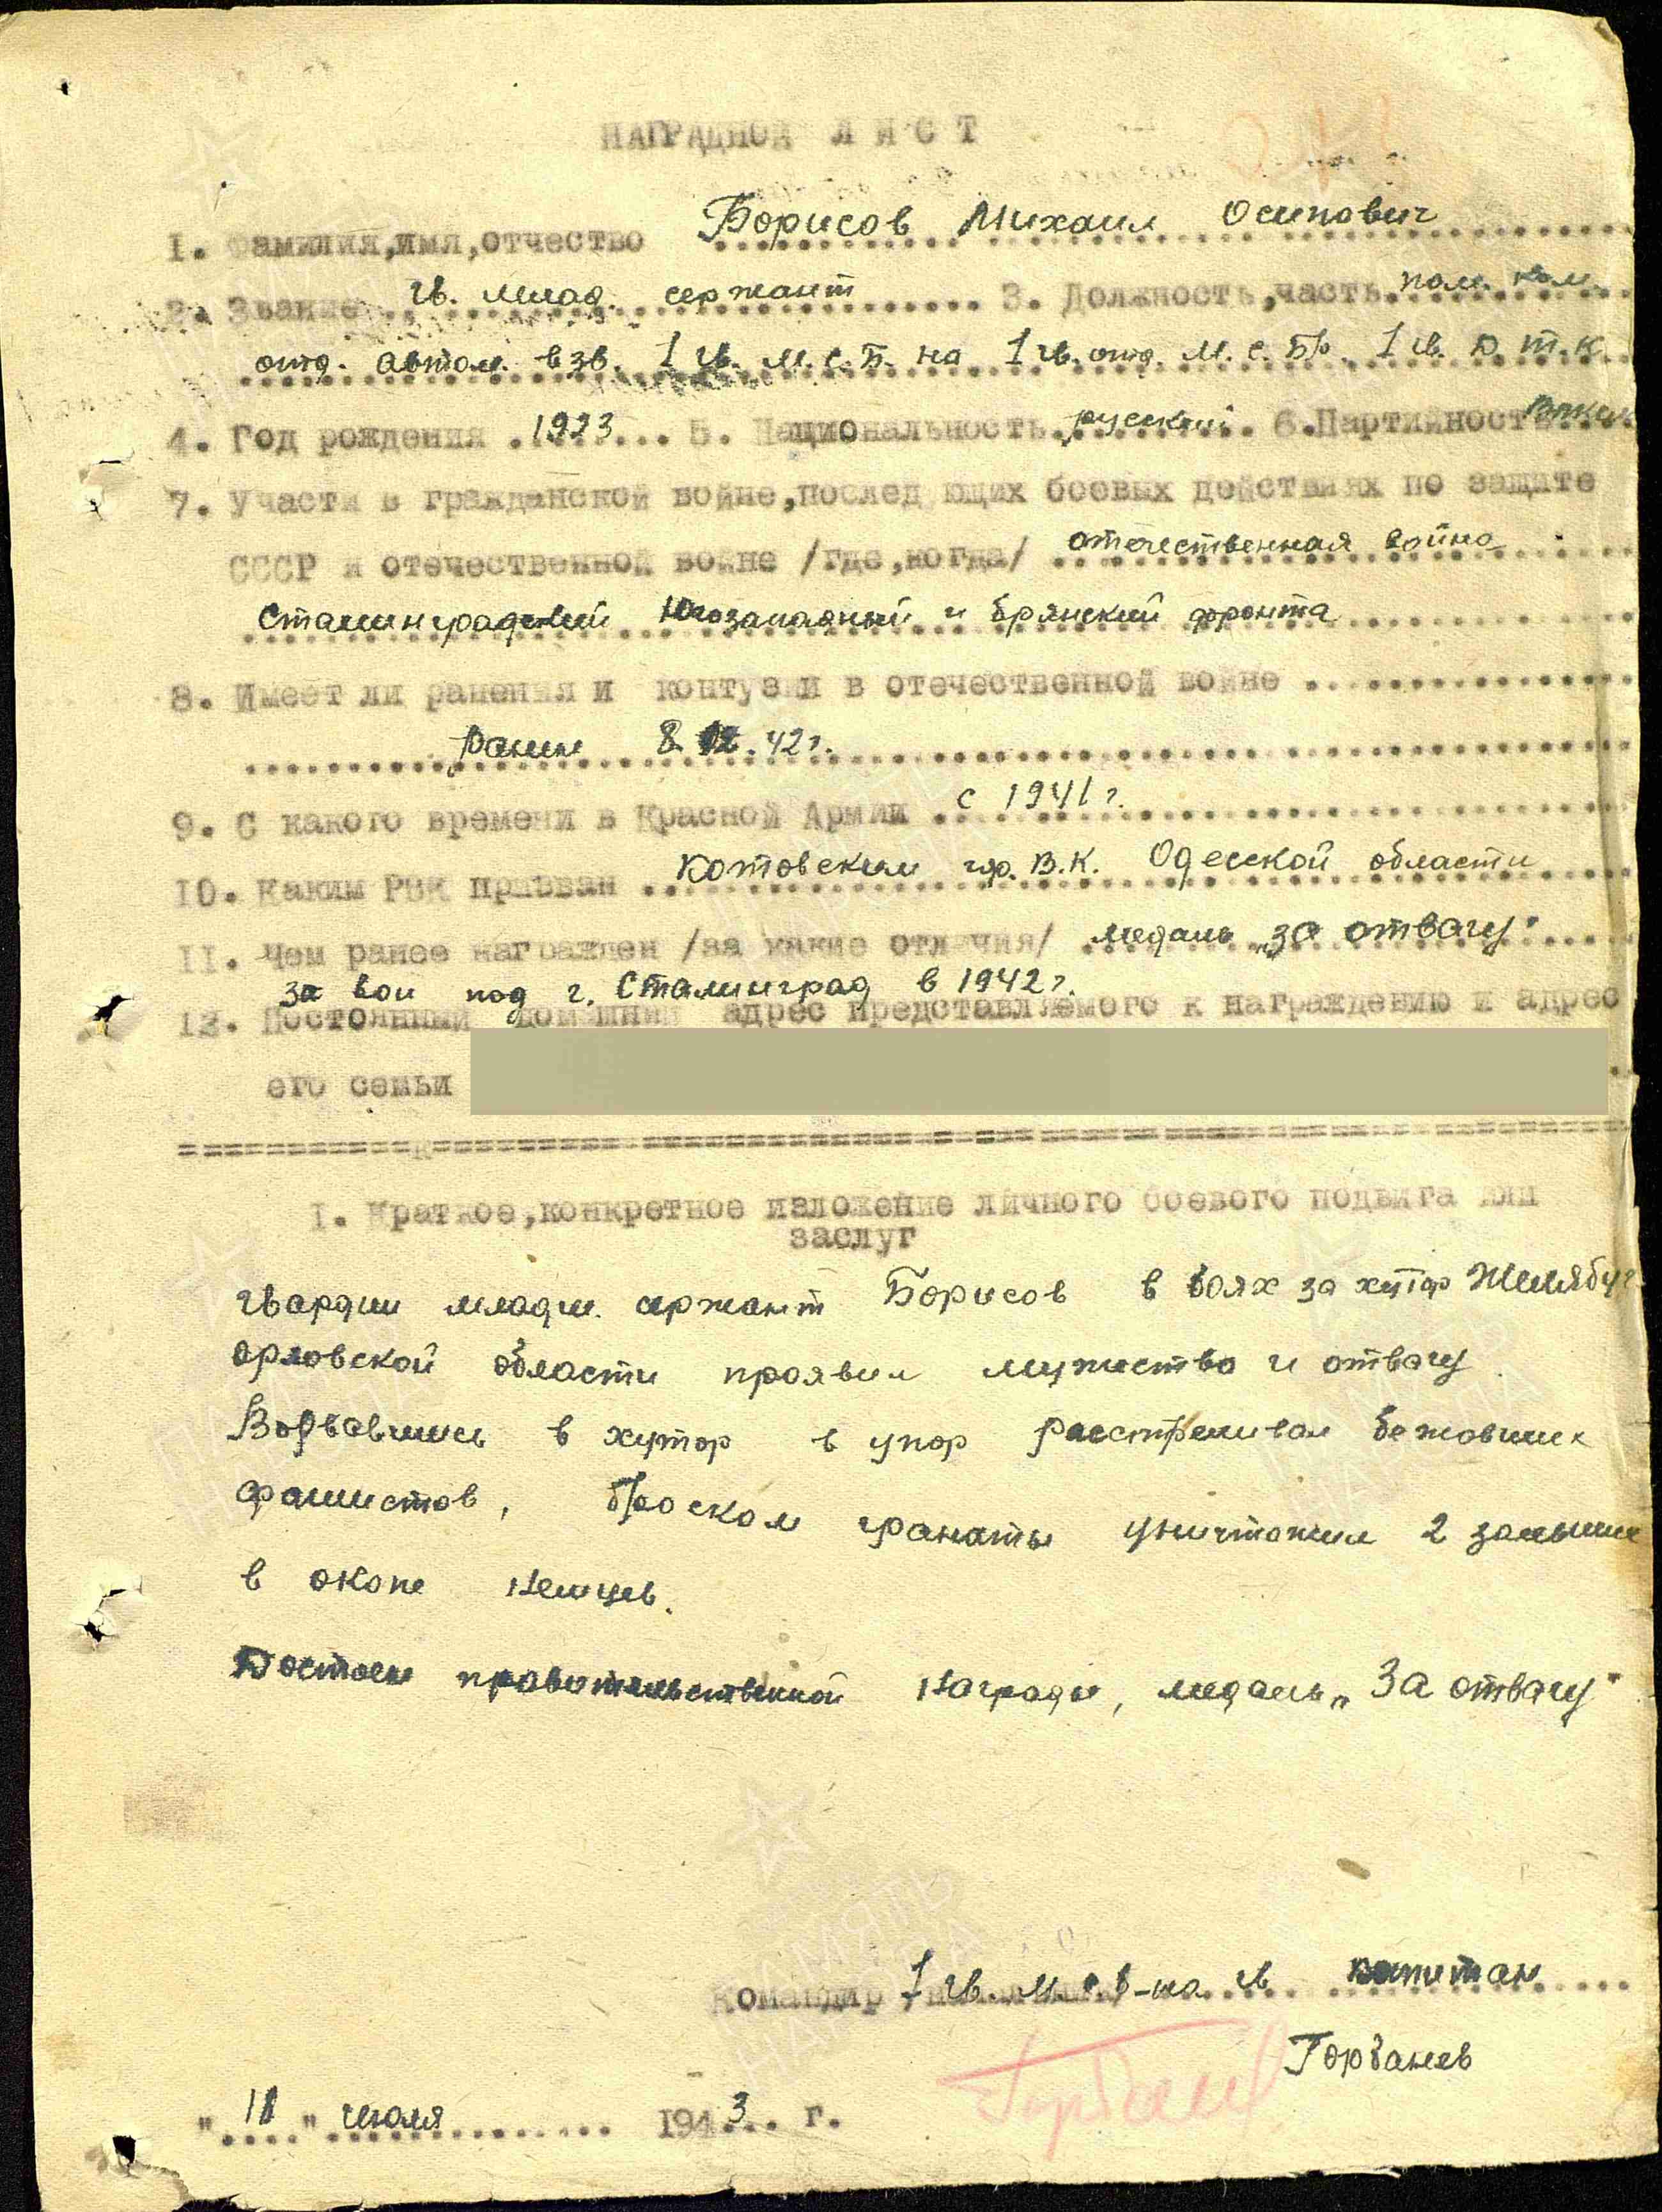 НАГРАДНОЙ ЛИСТ
1. Фамилия,имя,отчество Борисов Михаил Осипович
2. Звание гв. млад. сержант 3. Должность,часть пом. ком.
отд. автом. взв. 1 гв. м.с.б. на 1 гв. отд. м.с.бр. 1 гв. Д.т.к.
4. Год рождения 1923 5. Национальность русский 6.Партийность
7. Участи в гражданской войне,послед ющих боевых действиях по защите
СССР и отечественной войне /где,когда/ отечественная война
Сталинградский Югозападный и брянский фронта
8. Имеет ли ранения и контузии в отечественной войне
Ранен 8. 12. 42 г.
9. С какого времени в Красной Армии с 1941 г.
10. Каким РВК призван Котовским В.К. Одесской области
11. Чем ранее награжден /за какие отличия/ медаль „за отвагу"
за бои под г. Сталинград в 1942 г.
12. Постоянный домашний адрес представляемого к награждению и адрес
его семьи
I. Краткое,конкретное изложение личного боевого подвига или
заслуг
Гвардии младш. сержант Борисов в боях за хутор
орловской области проявил мужество и отвагу.
Ворвавшись в хутор в упор расстреливал бежавших
фашистов, броском гранаты уничтожил 2 засевших
в окопе немцев.
Достоен правительственной награды, медаль „За отвагу"
Командир 1 гв. м.с.б-на гв капитан
Горбанев
Горбанев
" 18 " июля 1943 г.
ПАМЯТЬ
НАРОДА